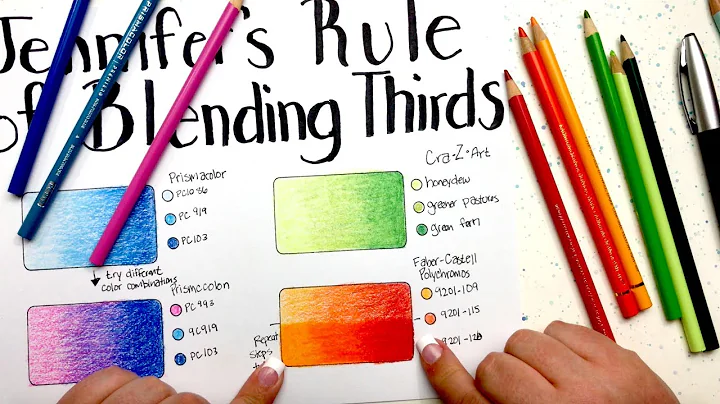 Jennifer's Rule
of Blending Thirds
PRISMACOLOR
PRISMACOLOR
Prismacolor
PC1086
PC 919
PC103
try different
color combinations
Prismacolor
PC 993
PC919
PC103
Cra-Z-Art
honeydew
greener pastures
green farm
Faber-Castell
Polychromos
9201-109
9201-115
Repeat
steps